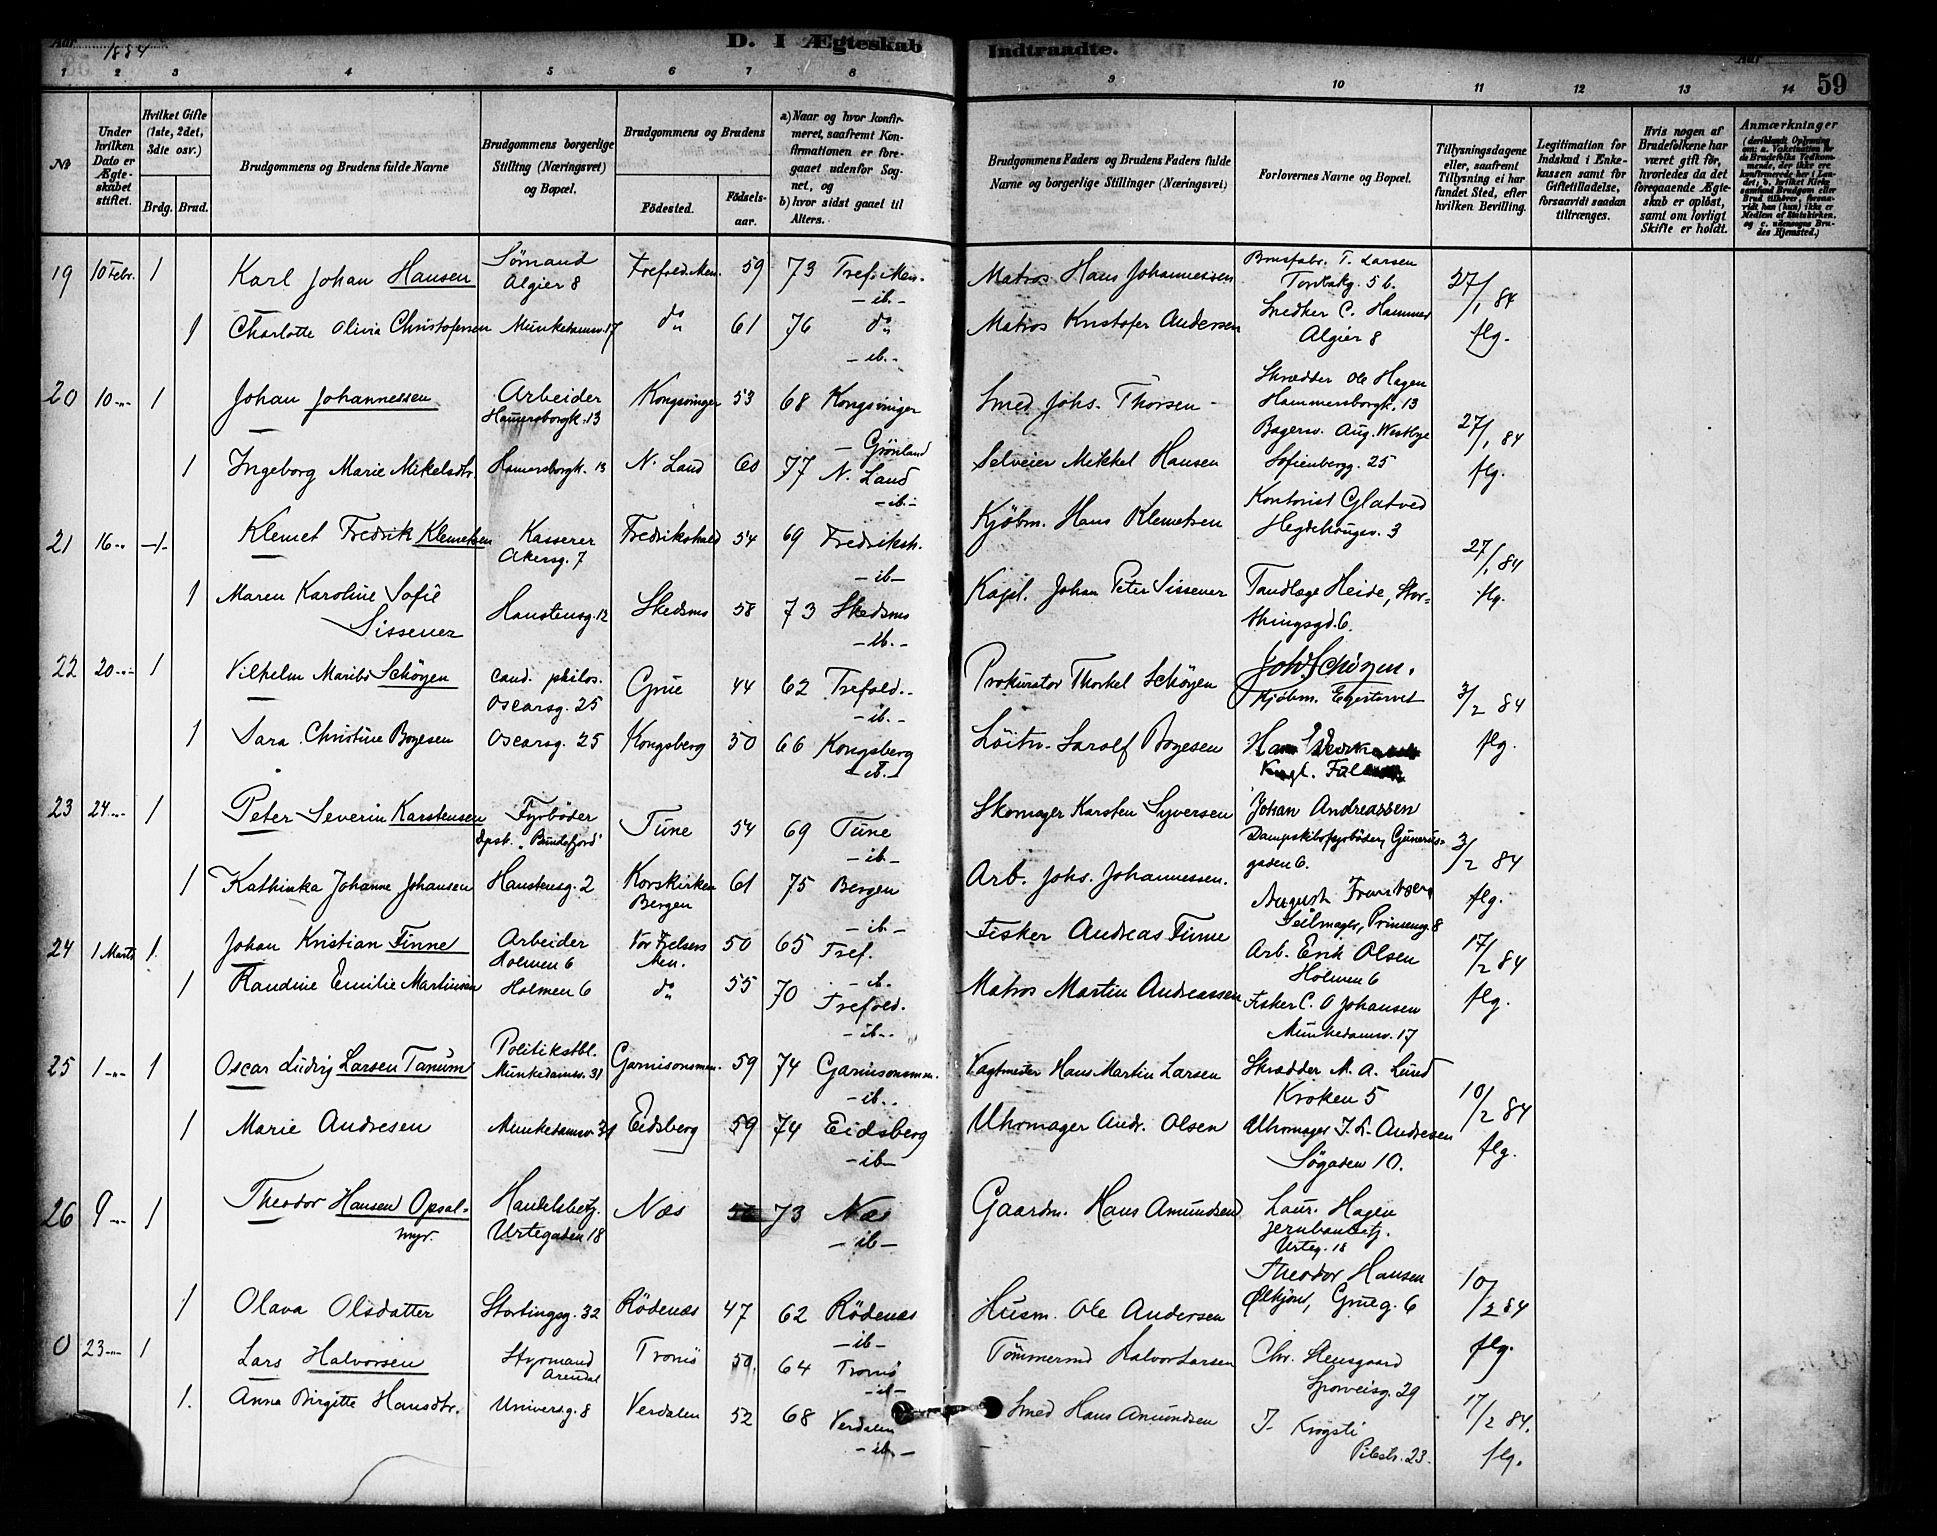 Aar 1884
D. I Ægteskab Indtraadte.
Aar
59
1 2 3 4 5 6 7 8 9 10 11 12 13 14
No
Under hvilken Dato er Ægteskabet stiftet.
Hvilket Gifte (1ste, 2det, 3die osv.)
Brdg. Brud.
Brudgommens og Brudens fulde Navne
Brudgommens borgerlige Stilling (Næringsvei) og Bopæl.
Brudgommens og Brudens
Fødested.
Fødselsaar.
a) Naar og hvor konfirmeret, saafremt Konfirmationen er foregaaet udenfor Sognet, og
b) hvor sidst gaaet til Alters.
Brudgommens Faders og Brudens Faders fulde Navne og borgerlige Stillinger (Næringsvei)
Forlovernes Navne og Bopæl.
Tillysningsdagene eller, saafremt Tillysning ei har fundet Sted, efter hvilken Bevilling.
Legitimation for Indskud i Enkekassen samt for Giftetilladelse, forsaavidt saadan tiltrænges.
Hvis nogen af Brudefolkene har været gift før, hvorledes da det foregaaende Ægteskab er opløst, samt om lovligt Skifte er holdt.
Anmærkninger
19 10 Febr. 1 Karl Johan Hansen Sømand Algier 8 Trefold. Men. 59 73 Tref. Men. -ib.- Matros Hans Johannessen T. Larsen 5 b. 27/1 84
1 Charlotte Olivia Christofersen Munkedamsv. 17 do 61 76 do -ib.- Matros Kristofer Andersen Snedker C. Hammer Algier 8 flg.
20 10-"- 1 Johan Johannessen Arbeider Hammersborgk. 13 Kongsvinger 53 68 Kongsvinger - Grönland Smed Johs. Thorsen - Skrædder Ole Hagen Hammersborgk. 13 27/1 84
1 Ingeborg Marie Mikelsdtr. Hamersborgk. 13 N. Land 60 77 N. Land -ib.- Selveier Mikkel Hansen Bagersv. Aug. Westbye Sofienbergg. 25 flg.
21 16-"- -1- Klemet Fredrik Klemetsen Kasserer Akersg. 7 Fredrikshald 54 69 Fredriksh. -ib- Kjøbm. Hans Klemetsen Kontorist Glatved Hegdehaugsv. 3 27/1 84
1 Maren Karoline Sofie Sissener Hanstensg. 12 Skedsmo 58 73 Skedsmo -ib.- Kapt. Johan Peter Sissener Tandlæge Heide, Storthingsgd. 6. flg.
22 20-"- 1 Vilhelm Maribo Schøyen cand. philos. Oscarsg. 25 Grue 44 62 Trefold.- -ib.- Prokurator Thorkel Schøyen Joh. Schøyen. Kjøbm. Egertorvet 3/2 84
1 Sara Christine Boyesen Oscarsg. 25 Kongsberg 50 66 Kongsberg -ib.- Löitn. Sarolf Boyesen flg.
23 24-"- 1 Peter Severin Karstensen Fyrbøder Dpsk. "Bundefjord" Tune 54 69 Tune -ib- Skomager Karsten Syversen Johan Andreassen Dampskibsfyrbøder, Gunerusgaden 6. 3/2 84
1 Kathinka Johanne Johansen Hanstensg. 2 Korskirken Bergen 61 75 Bergen -ib- Arb. Johs. Johannessen. August Seilmager, Prinsensg. 8 flg.
24 1 Marts 1. Johan Kristian Finne Arbeider Holmen 6 Vor Frelsers Men. 50 65 Tref. -ib. Fisker Andreas Finne Arb. Erik Olsen Holmen 6 17/2 84
1 Randine Emilie Martinsen Holmen 6 do 55 70 Trefold. -ib.- Matros Martin Andreassen Fisker C. O Johansen Munkedamsv. 17 flg.
25 1-"- 1 Oscar Ludvig Larsen Tanum Politikstbl. Munkedamsv. 31 Garnisonsmen. 59 74 Garnisonsmen. -ib.- Vagtmester Hans Martin Larsen Skrædder M. A. Lund Kroken 5 10/2 84
1 Marie Andresen Munkedamsv. 31 Eidsberg 59 74 Eidsberg -ib- Uhrmager Andr. Olsen Uhrmager J. L. Andresen Søgaden 10. flg.
26 9-"- 1 Theodor Hansen Opsalmyr. Handelsbetj. Urtegaden 18 Næs 73 Næs -ib- Gaardm. Hans Amundsen Laur. Hagen Jernbanebetj. Urteg. 18
1 Olava Olsdatter Stortingsg. 32 Rödenæs 47 62 Rödenæs -ib- Husm. Ole Andersen Theodor Hansen Ølkjører, Grüeg. 6 10/2 84 flg.
0 23-"- 1 Lars Halvorsen Styrmand Arendal Tromö 59. 64 Tromö -ib- Tömmermd Halvor Larsen Chr. Stensgaard Sporveisg. 29
1. Anna Birgitte Hansdtr. Universg. 8 Verdalen 52 68 Verdalen -ib- Smed Hans Amundsen J. Krogsti Pilestr. 23. 17/2 84. flg.